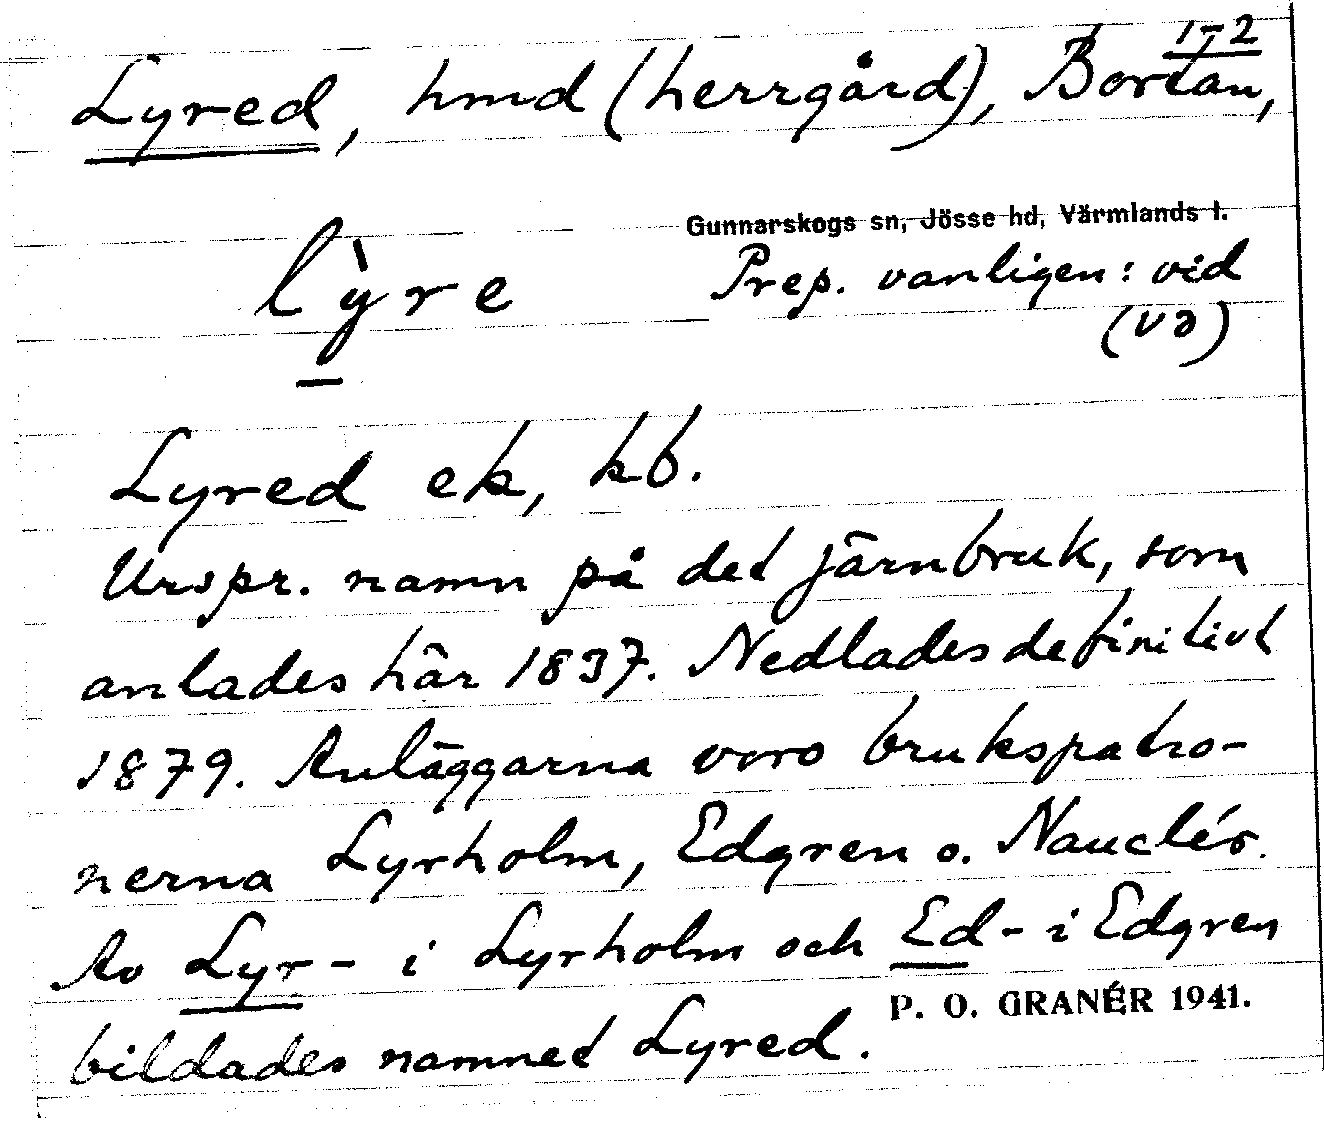 1-2
Lyred, hmd (herrgård), Bortan,
Gunnarskogs sn, Jösse hd, Värmlands l.
lỳre Prep. vanligen: vid
(və)
Lyred ek, kb.
Urspr. namn på det järnbruk, som
anlades här 1837. Nedlades definitivt
1879. Anläggarna voro brukspatro-
nerna Lyrholm, Edgren o. Nauclér.
Av Lyr- i Lyrholm och Ed- i Edgren
P. O. GRANÉR 1941.
bildades namnet Lyred.